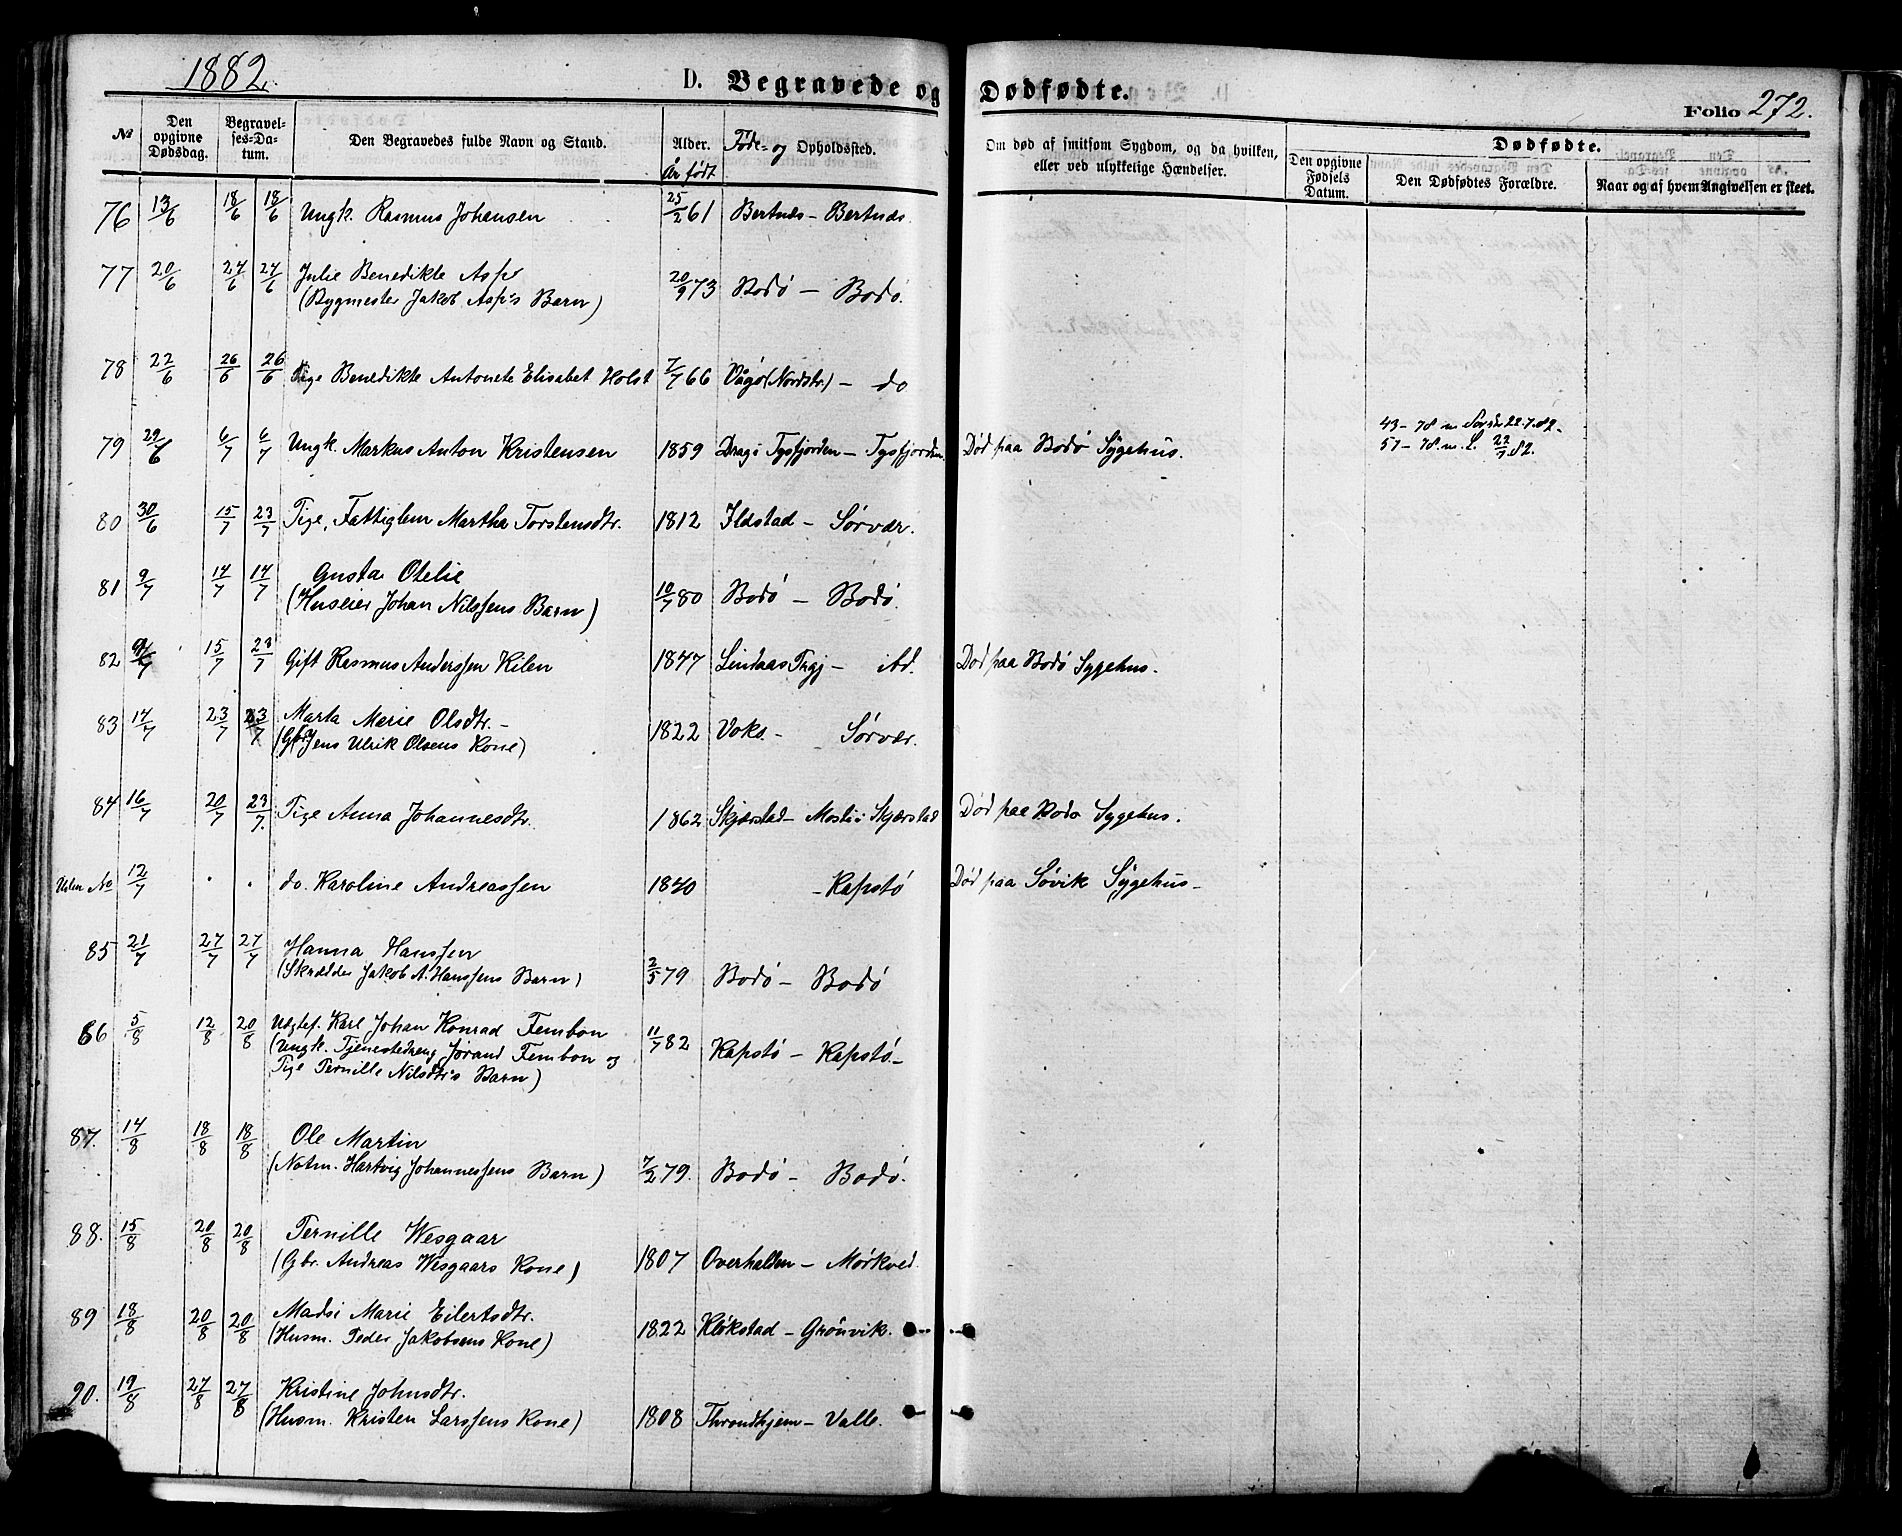 1882.
D. Begravede og Dødfødte.
Folio 272.
№ Den opgivne Dødsdag. Begravelses-Datum. Den Begravedes fulde Navn og Stand. Alder. År født Føde- og Opholdssted. Om død af smitsom Sygdom, og da hvilken, eller ved ulykkelige Hændelser. Dødfødte. Den opgivne Fødsels Datum. Den Dødfødtes Forældre. Naar og af hvem Angivelsen er skeet.
76 13/6 18/6 18/6 Ungk. Rasmus Johansen 25/2 61 Bertnæs - Bertnæs.
77 20/6 24/6 24/6 Julie Benedikte Asp
(Bygmester Jakob Asp's Barn) 20/9 73 Bodø - Bodø.
78 22/6 26/6 26/6 Pige Benedikte Antonete Elisabet Holst 7/7 66 Vågø (Nordstr.) - do
43 - 78 m 22.7.82.
57 - 78. m. L. 22/7 82.
79 29/6 6/7 6/7 Ungk. Markus Anton Kristensen 1859 Drag i Tysfjorden - Tysfjorden. Død paa Bodø Sygehus.
80 30/6 15/7 23/7 Pige, Fattiglem Martha Torstensdtr. 1812 Ildstad - Sørvær.
81 9/7 14/7 14/7 Gusta Otelie
(Huseier Johan Nilssens Barn) 10/7 80 Bodø - Bodø.
82 9/7 15/7 23/7 Gift Rasmus Anderssen Kilen 1847 Lindaas Prgj - ibd. Død paa Bodø Sygehus.
83 14/7 23/7 23/7 Marta Marie Olsdtr. -
(Gbr. Jens Ulrik Olsens Kone) 1822 Voks. - Sørvær.
84 16/7 20/7 23/7. Pige Anna Johannesdtr. 1862 Skjærstad - Mosti i Skjærstad Død paa Bodø Sygehus.
Uden No 12/7 . . do. Karoline Andreassen 1840 - Kapstø Død paa Søvik Sygehus -
85 21/7 27/7 27/7 Hanna Hanssen
(Skrædder Jakob A. Hanssens Barn) 2/5 79 Bodø - Bodø
86 5/8 12/8 20/8 Uægtef. Karl Johan Konrad Fembon
(Ungk. Tjenestedreng Jørand Fembon og
Pige Pernille Nilsdtr's Barn) 11/7 82 Kapstø - Kapstø -
87. 14/8 18/8 18/8 Ole Martin
(Notm. Hartvig Johannessens Barn) 7/2 79. Bodø - Bodø.
88. 15/8 20/8 20/8 Pernille Wesgaar
(Gbr. Andreas Wesgaars Kone) 1807 Overhalden - Mørkved.
89 18/8 20/8 20/8 Madsi Marie Eilertsdtr.
(Husm. Peder Jakobsens Kone) 1822 Kløkstad - Grønvik.
90. 19/8 27/8 27/8 Kristine Johnsdtr.
(Husm. Kristen Larssens Kone) 1808 Throndhjem - Valle.